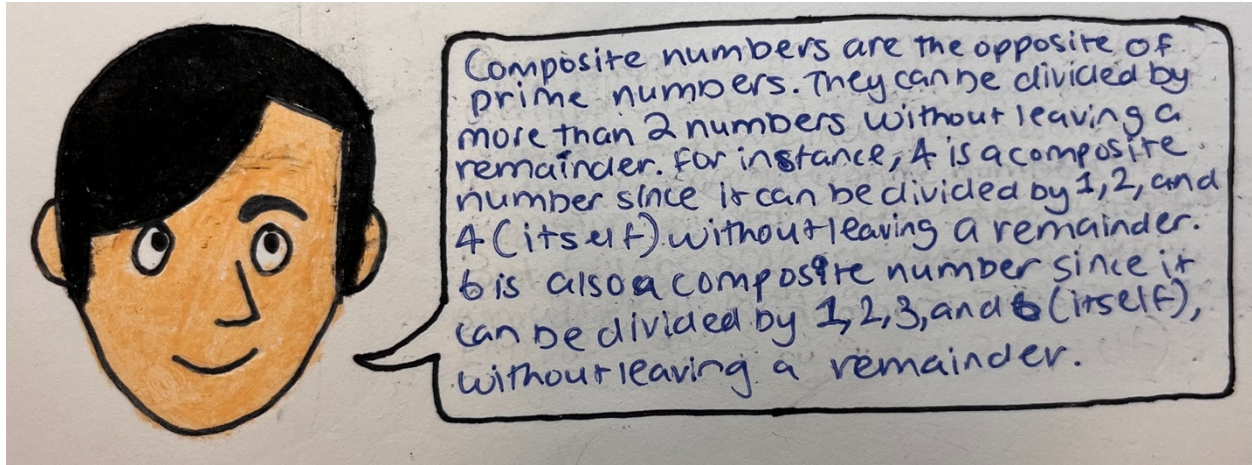 Composite numbers are the opposite of
prime numbers. They can be divided by
more than 2 numbers without leaving a
remainder. For instance, 4 is a composite
number since it can be divided by 1, 2, and
4 (itself) without leaving a remainder.
6 is also a composite number since it
can be divided by 1, 2, 3, and 6 (itself),
without leaving a remainder.